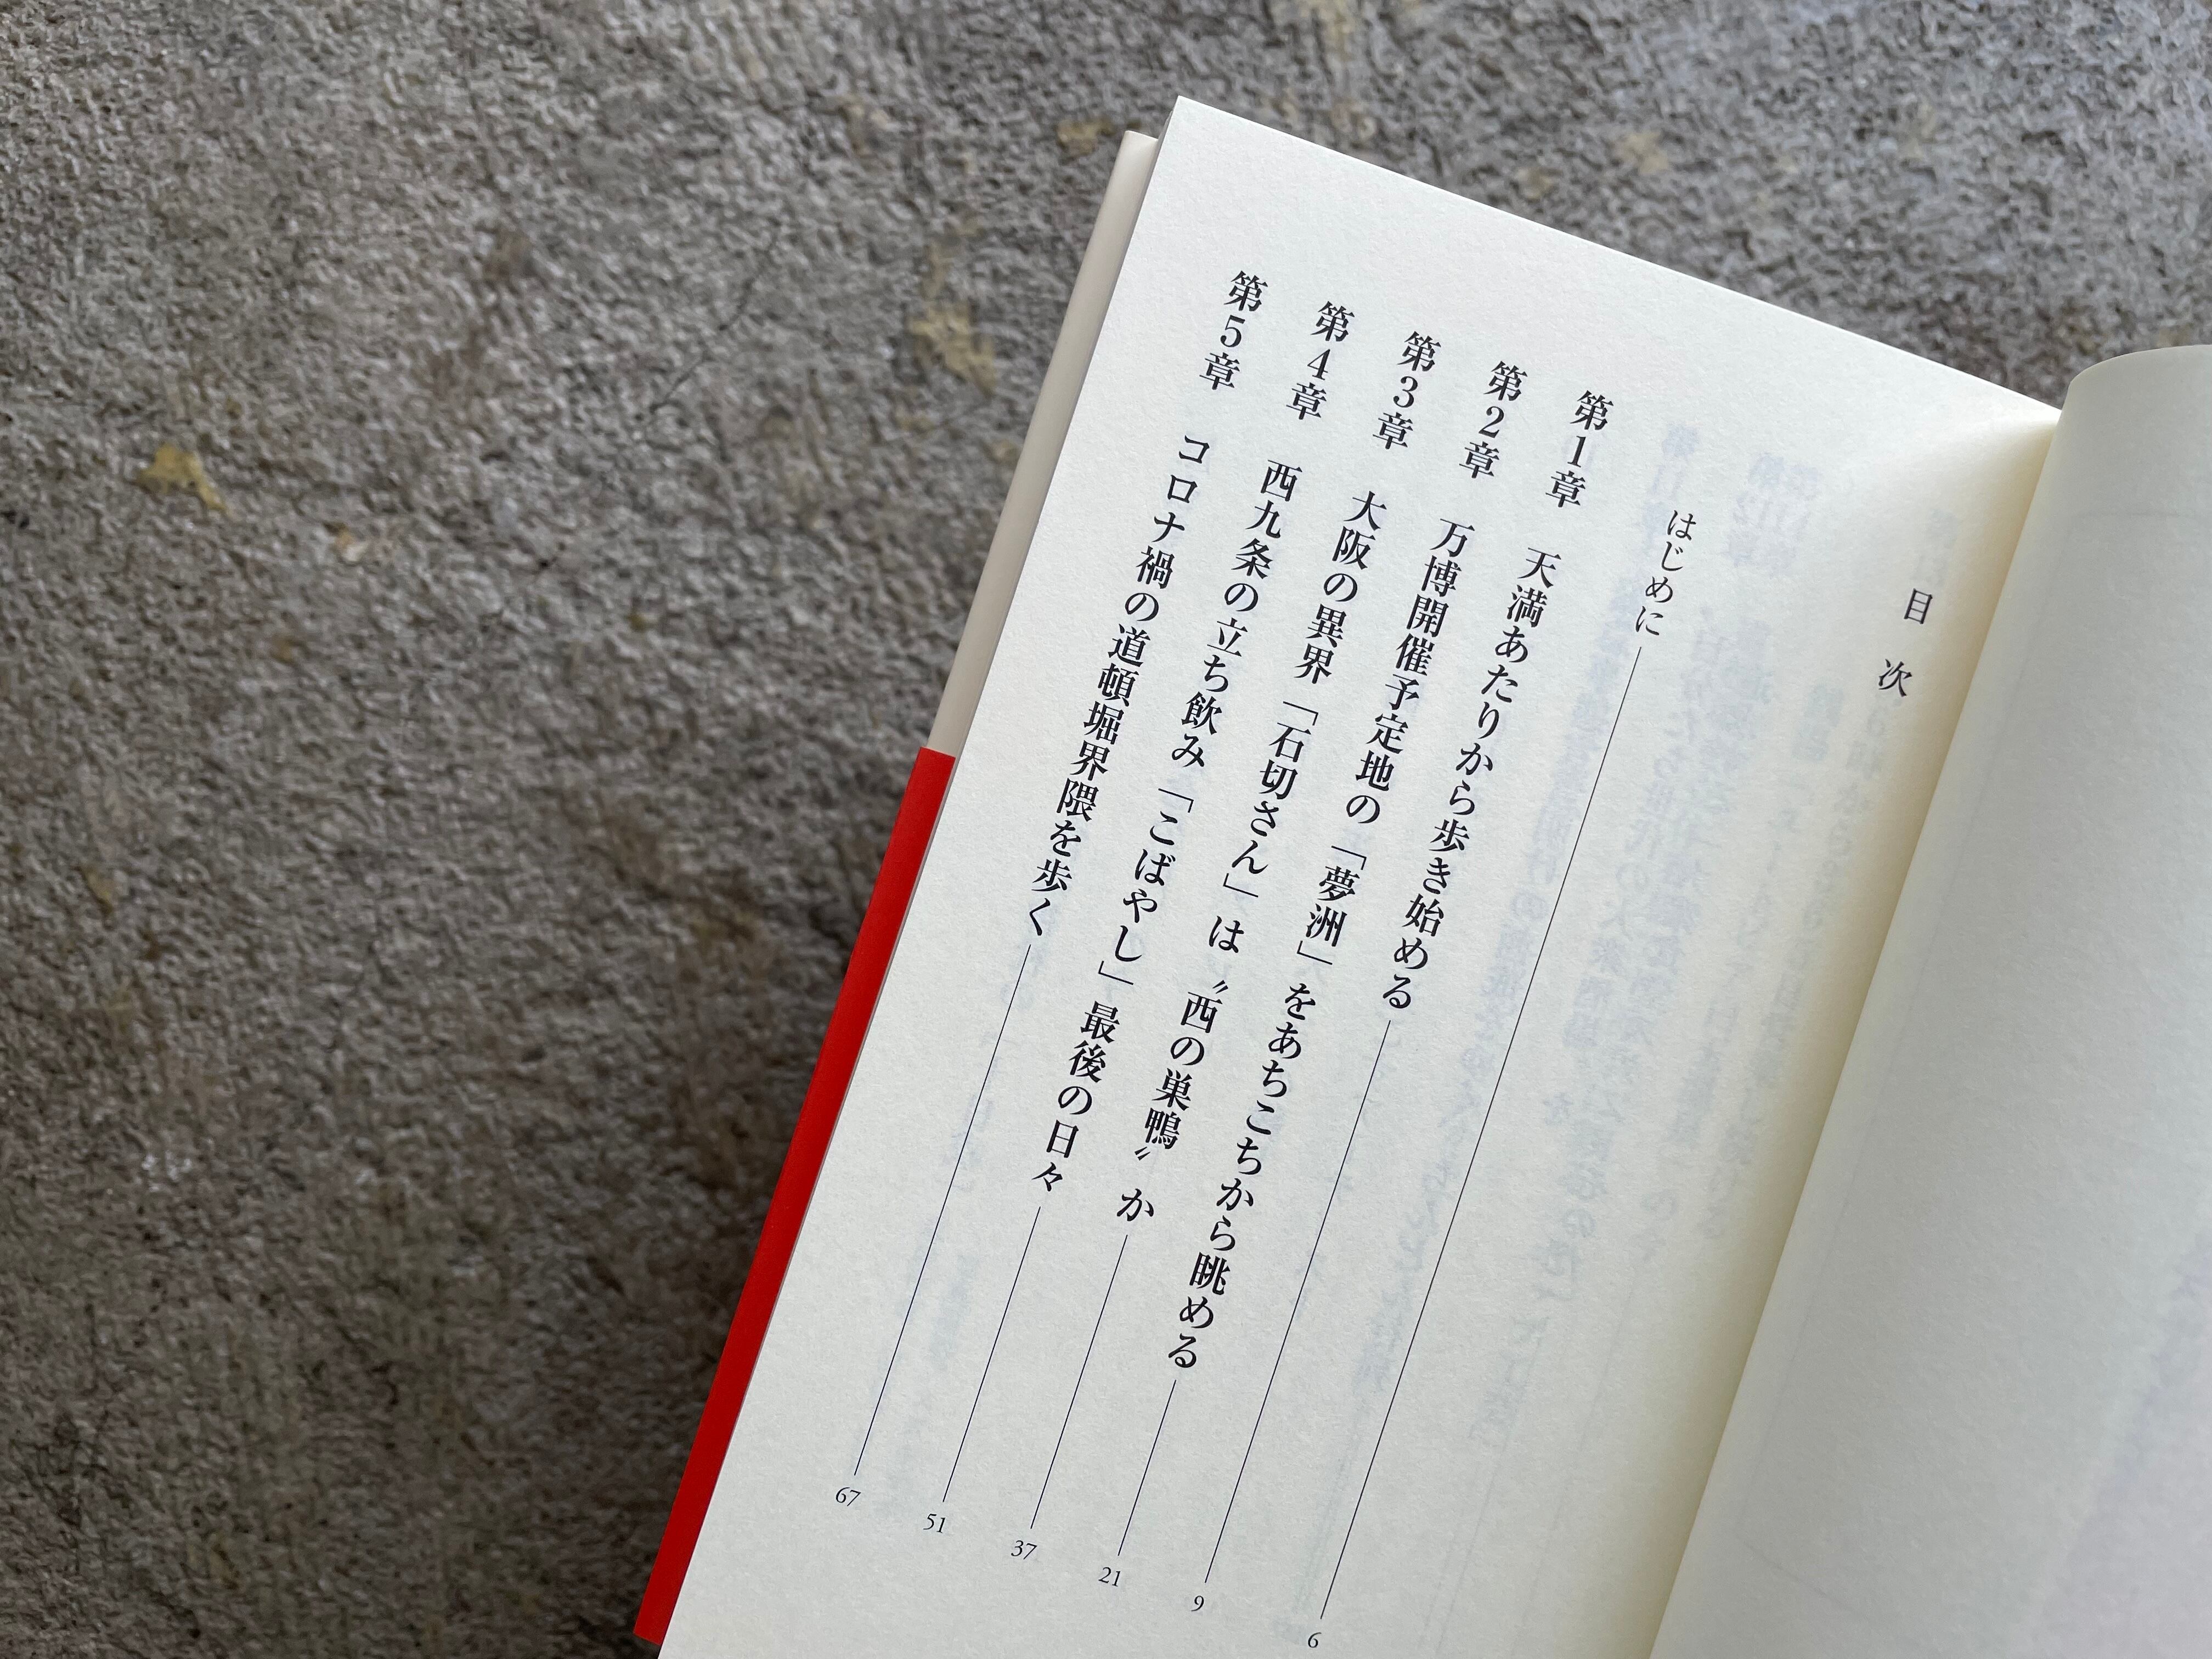 目次
はじめに 6
第1章 天満あたりから歩き始める 9
第2章 万博開催予定地の「夢洲」をあちこちから眺める 21
第3章 大阪の異界「石切さん」は〝西の巣鴨〟か 37
第4章 西九条の立ち飲み「こばやし」最後の日々 51
第5章 コロナ禍の道頓堀界隈を歩く 67